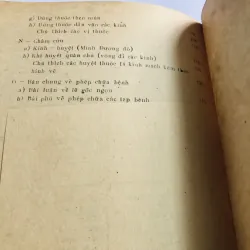 g) Dùng thuốc theo mùa
h) Dùng thuốc dẫn vào các kinh
Chú thích các vị thuốc
X - Châm cứu
a) Kinh - huyệt (Minh Đường đồ)
b) Khí huyết quán chú (vòng đi các kinh)
Chú thích các huyệt thuộc 14 kinh mạch kèm theo
hình vẽ
- Bàn chung về phép chữa bệnh
a) Bài luận về lẽ gốc ngọn
b) Bài phú về phép chữa các tạp bệnh